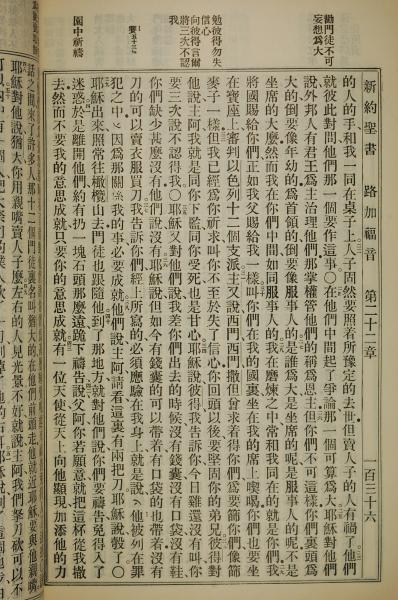 新約聖書 路加福音 第二十二章 百三十六
勸門徒不可
妄想為大
的人的手和我一同在桌子上人子固然要照着所豫定的去世但賣人子的人有禍了他們
就彼此對問他們那一個要作這事○在他們中間起了爭論那一個可算爲大耶穌對他們
說外邦人有君王爲主治理他們那掌權管他們的稱爲恩主但你們不可這樣你們裏頭爲
大的倒要像年幼的爲首領的倒要像服事人的是誰爲大是坐席的呢是服事人的呢不是
坐席的大麽然而我在你們中間如同服事人的我在磨煉之中常和我同在的就是你們我
將國賜給你們正如我父賜給我一樣叫你們在我的國裏坐在我的席上喫喝你們也要坐
勉彼得勿失
信心
在寶座上審判以色列十二個支派主又說西門西門撒但曾求着得你們爲要篩你們像篩
麥子一樣但我已經爲你祈求叫你不至於失了信心你回頭以後要堅固你的弟兄彼得對
向彼得言爾
將三次不認
我
他說主阿我就是同你下監同你受死也是甘心耶穌說彼得我告訴你今日雞還沒有叫你
要三次說不認得我○耶穌又對他們說我差你們出去的時候沒有錢囊沒有口袋沒有鞋
你們缺少甚麽沒有他們說沒有耶穌說但如今有錢囊的可以帶着有口袋的也帶着沒有
刀的可以賣衣服買刀我告訴你們經上所寫的必須應驗在我身上就是說他被列在罪
犯之中因爲那關係我的事必要成就他們說主阿請看這裏有兩把刀耶穌說彀了○
園中祈禱
耶穌出來照常往橄欖山去門徒也跟隨他到了那地方就對他們說你們要禱告免得入了
迷惑於是離開他們約有扔一塊石頭那麽遠跪下禱告說父阿你若願意就把這杯從我撤
去然而不要我的意思成就只要你的意思成就有一位天使從天上向他顯現加添他的力
話之間來了許多人那十二個門徒裏名叫猶大的在他們前頭走他就近耶穌要與他親嘴
耶穌對他說猶大你用親嘴賣人子麽左右的人見光景不好就說主阿我們拏刀砍可以不